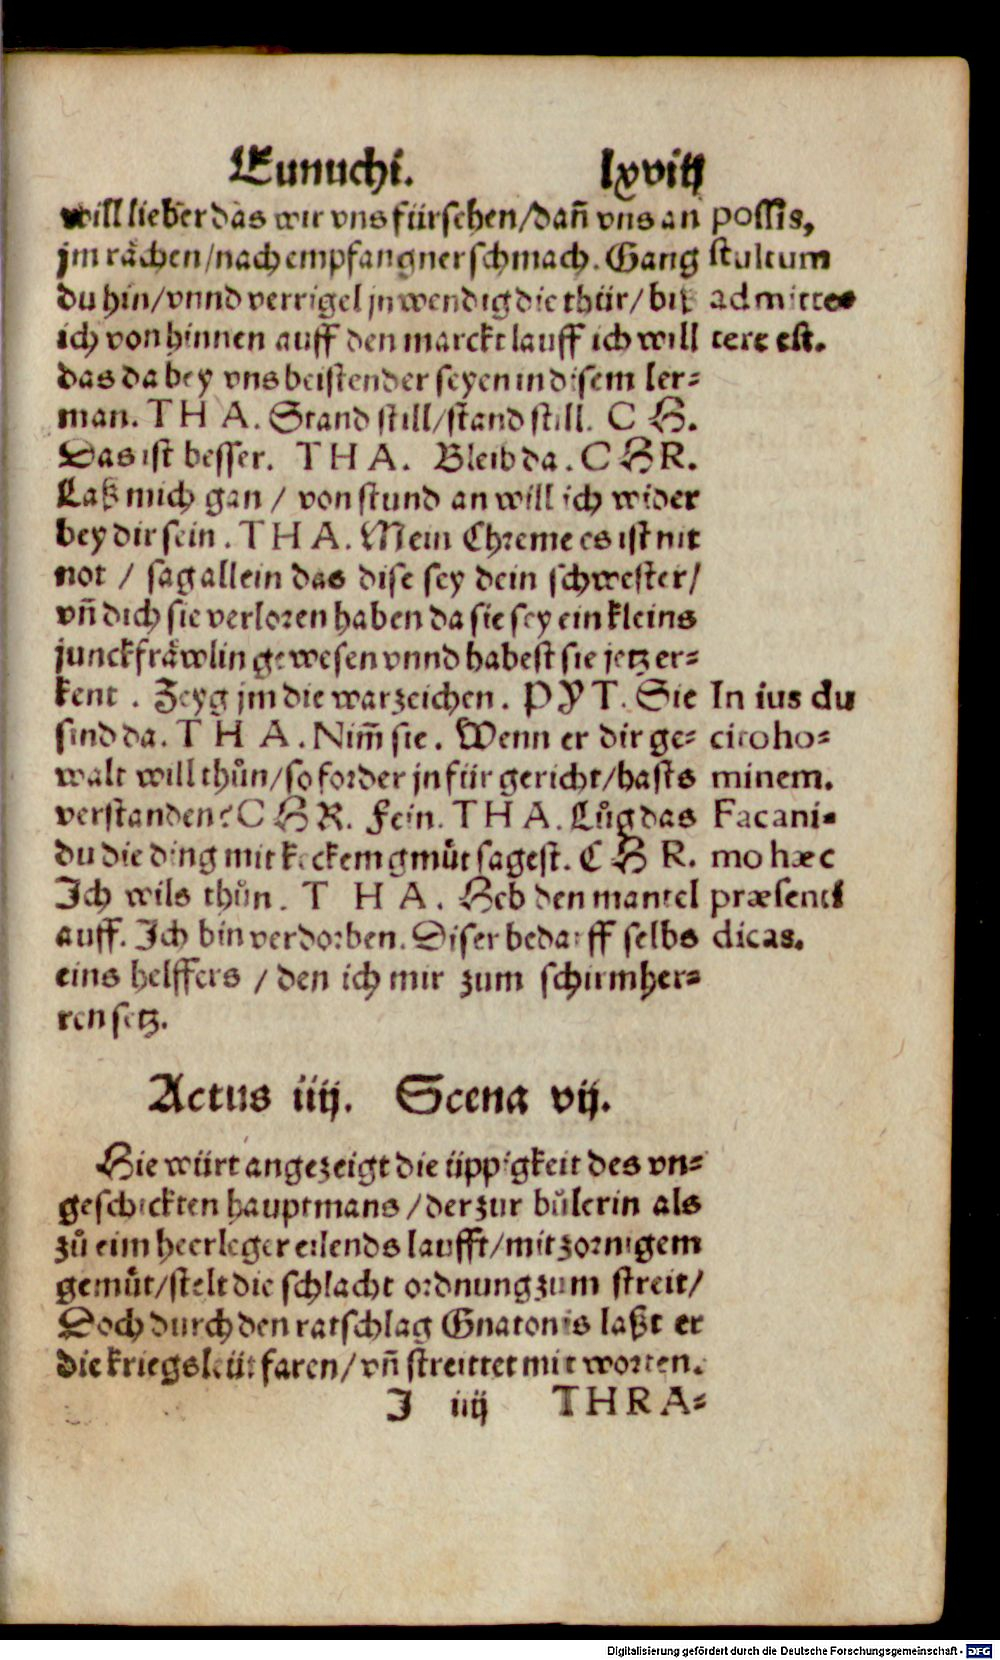 Eunuchi. lxviij
will lieber das wir vns fürsehen/dañ vns an
jm rächen/nach empfangner schmach. Gang
du hin/vnnd verrigel jnwendig die thür/biß
ich von hinnen auff den marckt lauff ich will
das da bey vns beistender seyen in disem ler⸗
man. THA. Stand still/stand still. CH.
Das ist besser. THA. Bleib da. CHR.
Laß mich gan / von stund an will ich wider
bey dir sein. THA. Mein Chreme es ist nit
not / sag allein das dise sey dein schwester/
vñ dich sie verloren haben da sie sey ein kleins
junckfräwlin gewesen vnnd habest sie jetz er⸗
kent. Zeyg jm die warzeichen. PYT. Sie
sind da. THA. Nim̃ sie. Wenn er dir ge⸗
walt will thůn/so forder jn für gericht/hasts
verstanden? CHR. Fein. THA. Lůg das
du die ding mit keckem gmůt sagest. CHR.
Ich wils thůn. THA. Heb den mantel
auff. Ich bin verdorben. Diser bedarff selbs
eins helffers / den ich mir zum schirmher⸗
ren setz.
possis,
stultum
admitte⸗
tere est.
In ius du
cito ho⸗
minem.
Fac ani⸗
mo hæc
præsenti
dicas.
Actus iiij. Scena vij.
Hie würt angezeigt die üppigkeit des vn⸗
geschickten hauptmans / der zur bůlerin als
zů eim heerleger eilends laufft/mit zornigem
gemůt/stelt die schlacht ordnung zum streit/
Doch durch den ratschlag Gnatonis laßt er
die kriegsleüt faren/vñ streittet mit worten.
J iiij THRA⸗
Digitalisierung gefördert durch die Deutsche Forschungsgemeinschaft - DFG